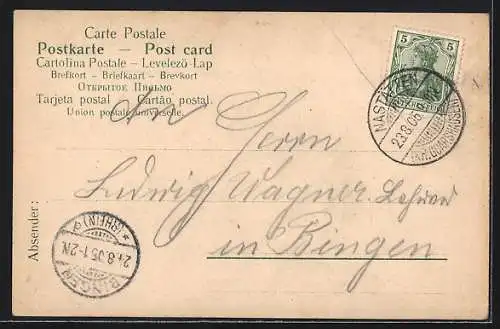 Carte Postale
Postkarte — Post card
Cartolina Postale — Levelező-Lap
Brefkort — Briefkaart — Brevkort
Открытое Письмо
Tarjeta postal — Cartão postal.
Union postale universelle.
5 5
NASTÄTTEN
23.8.05
An Herrn
Ludwig Wagner
in Bingen
Absender:
(RHEIN)
24.8.05.1-2N.
BINGEN